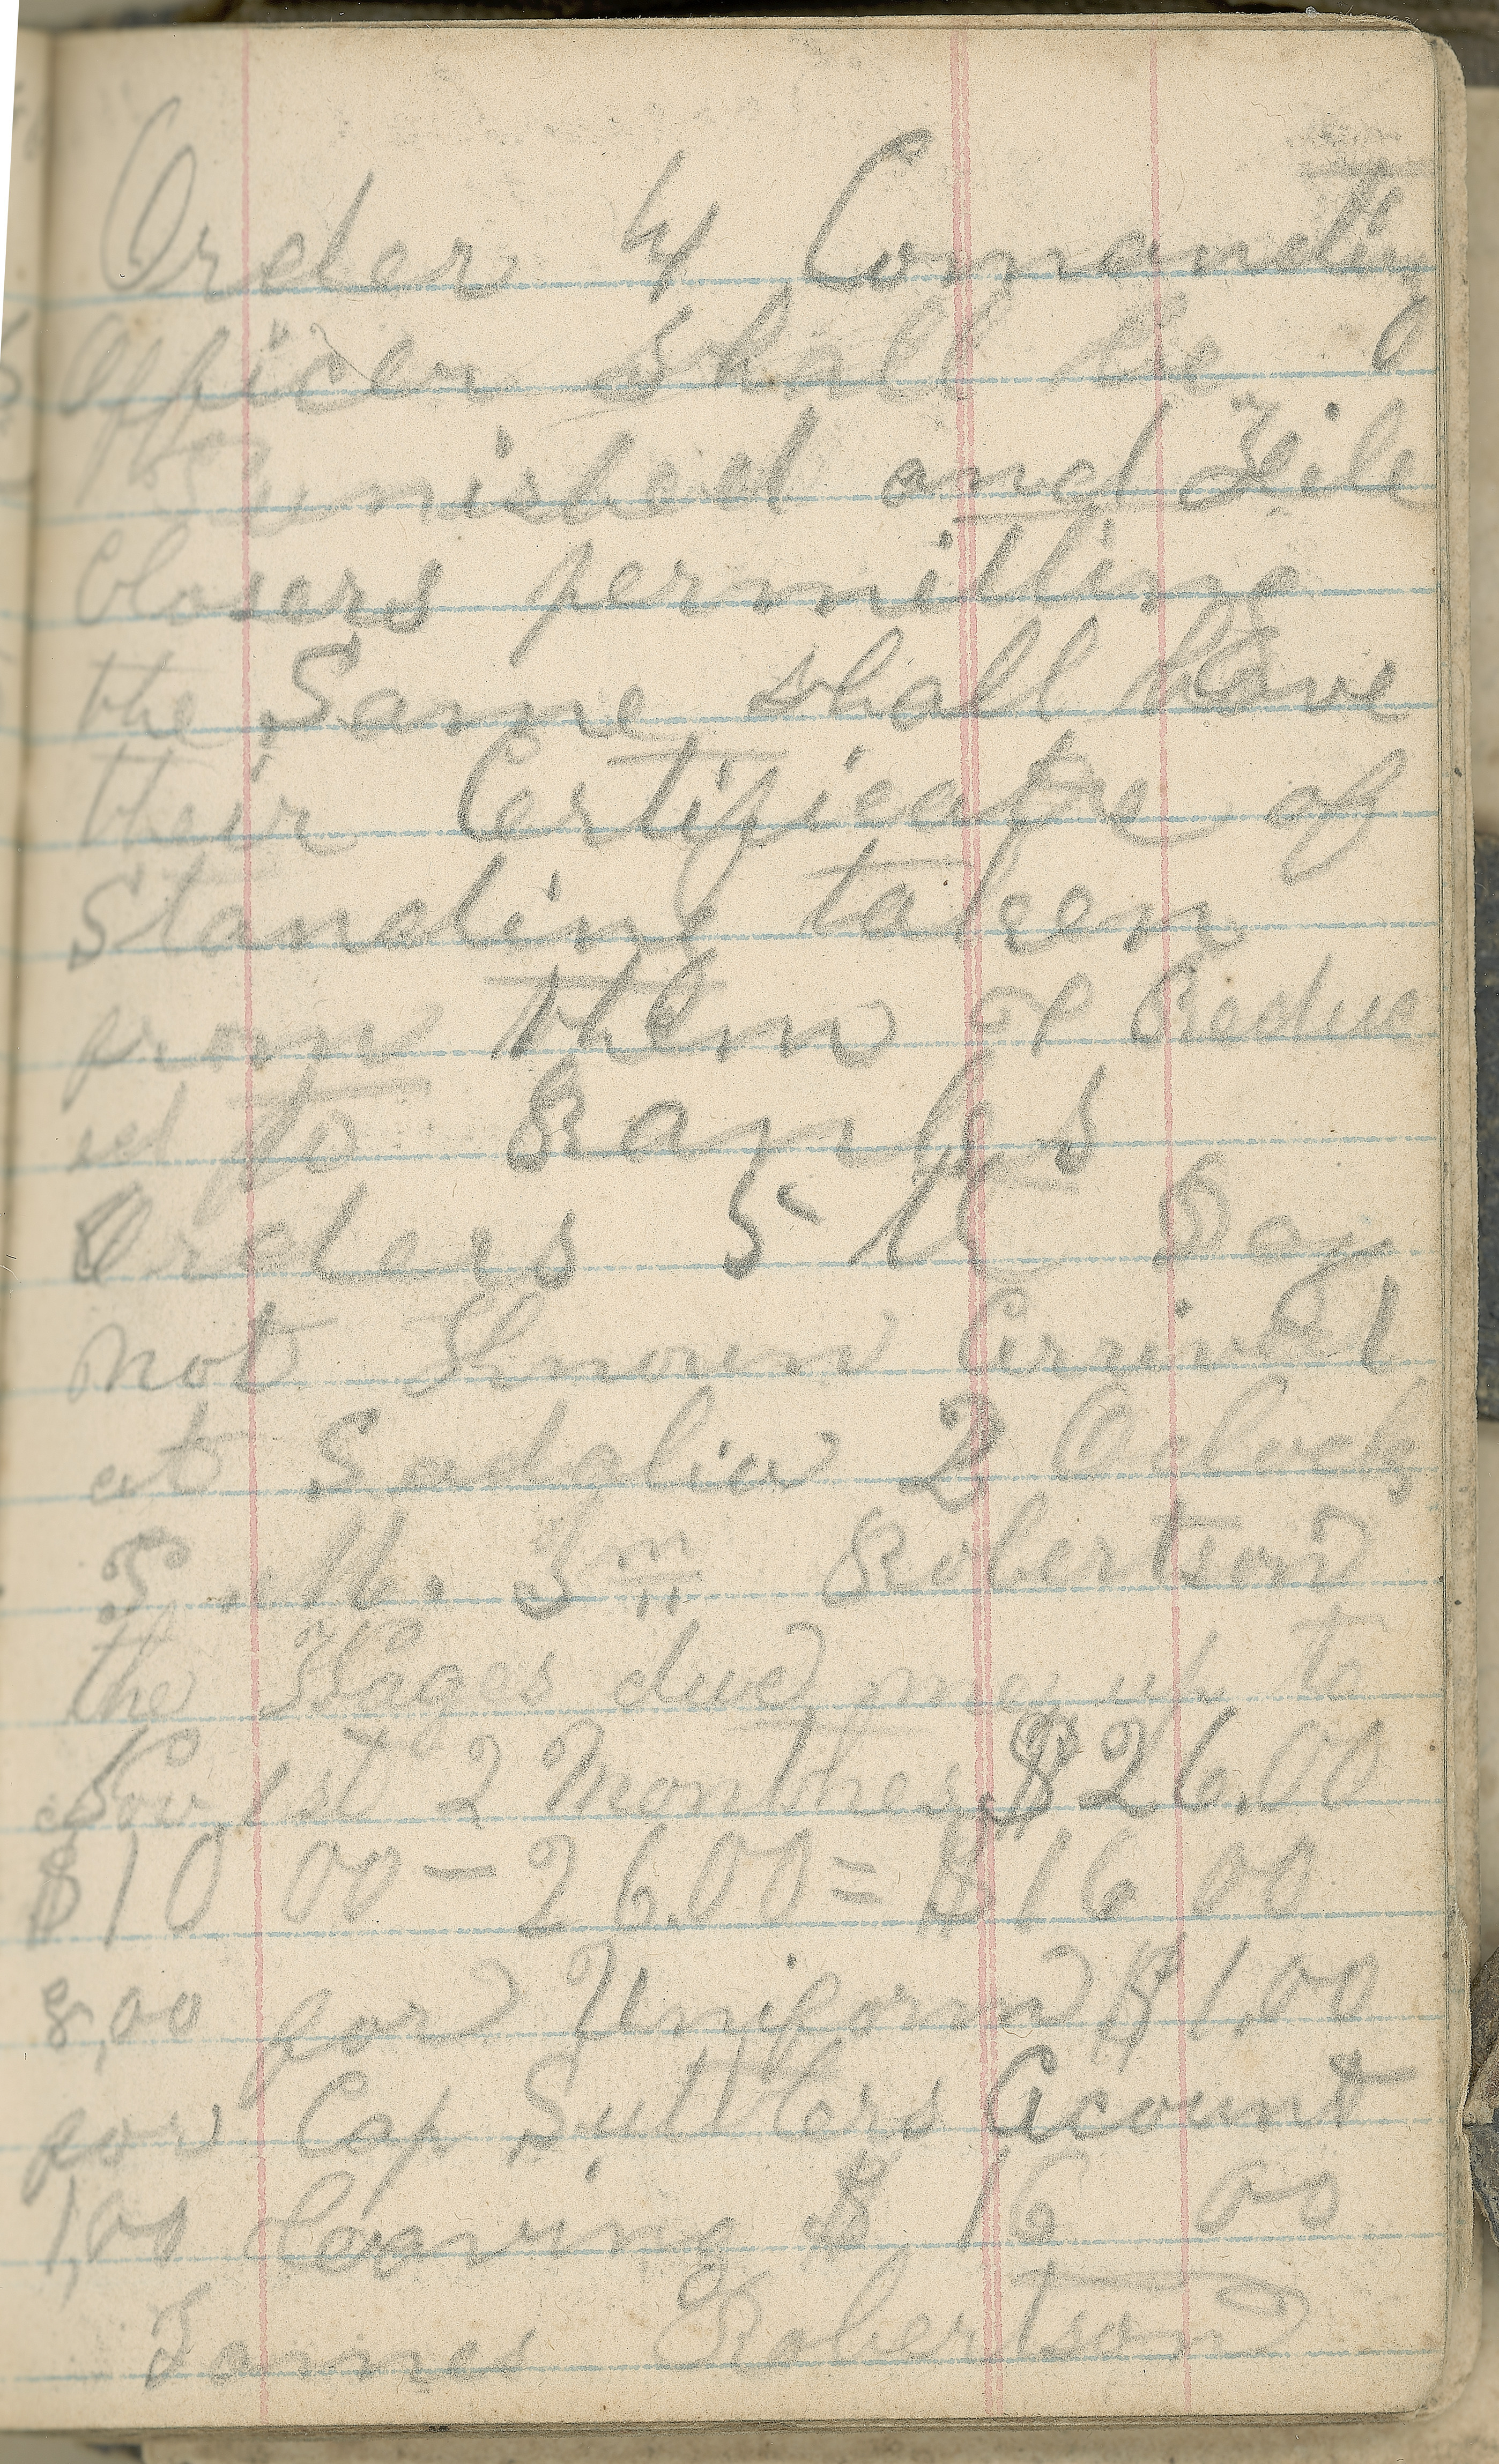 Order 4 Comanding
Officer shall be
Punished and File
Closers permitting
the Same shall have
their Certificatre of
Standing taken
from them or Reduc
ed to Ranks
Orders 5 th Day
not Known Arrival
at Sadalia 2 Oclock
P. M. Jm Robertson
the Wages due me up to
Nov 1st 2 Monthes $26.00
$10 00 – 26.00 = $16 00
8,00 for Uniform $1.00
for Cap Suttlers Acount
1,00 leaving $ 16 00
James Robertson